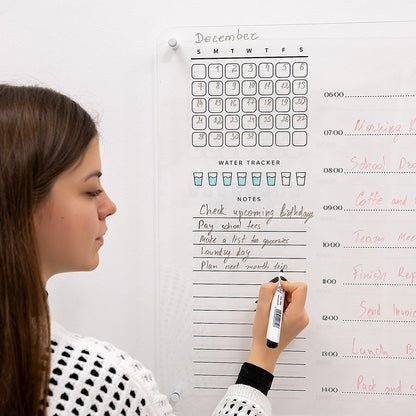 December
S M T W T F S
1 2 3 4 5 6
7 8 9 10 11 12 13
14 15 16 17 18 19 20
21 22 23 24 25 26 27
28 29 30 31
WATER TRACKER
NOTES
Check upcoming Birthdays
Pay school fees
Make a list for groceries
Laundry day
Plan next month trip
06:00
07:00 Morning
08:00 School Dro
09:00 Coffe and
10:00 Team Mee
11:00 Finish Rep
12:00 Send Invoice
13:00 Lunch B
14:00 Pack and s